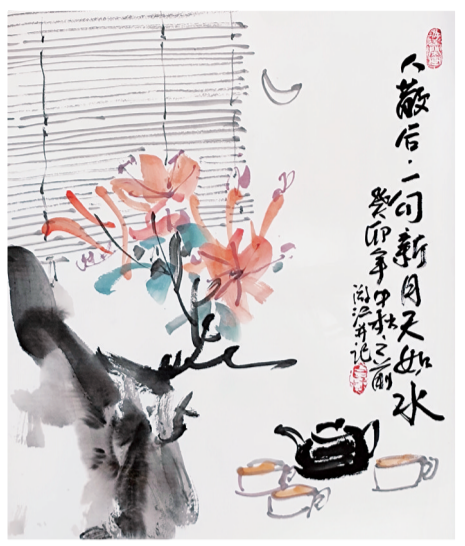 人散后.一勾新月天如水
癸卯年中秋之前
并记